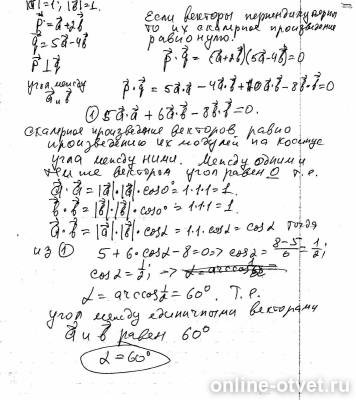 |a⃗|=1, |b⃗|=1.
p⃗ = a⃗+2b⃗
q⃗ = 5a⃗-4b⃗
p⃗ ⊥ q⃗
угол между
a⃗ и b⃗
Если векторы перпендикулярны
то их скалярное произведение
равно нулю.
p⃗ · q⃗ = (a⃗+2b⃗)(5a⃗-4b⃗)=0
p⃗ · q⃗ = 5a⃗·a⃗ - 4a⃗b⃗+10a⃗·b⃗-8b⃗·b⃗=0
① 5a⃗·a⃗ + 6a⃗·b⃗ - 8b⃗·b⃗=0.
скалярное произведение векторов равно
произведению их модулей на косинус
угла между ними. Между одним и
тем же вектором угол равен 0 т.е.
a⃗·a⃗ = |a⃗|·|a⃗|·cos0°=1·1·1=1.
b⃗·b⃗ = |b⃗|·|b⃗|·cos0°=1·1·1=1.
a⃗·b⃗ = |a⃗|·|b⃗|·cosα=1·1·cosα=cosα тогда
из ① 5+6·cosα-8=0 => cosα = (8-5)/6 = 1/2;
cosα=1/2; =>
α = arccos 1/2 = 60°. Т.е.
угол между единичными векторами
a⃗ и b⃗ равен 60°
α=60°
online-otvet.ru